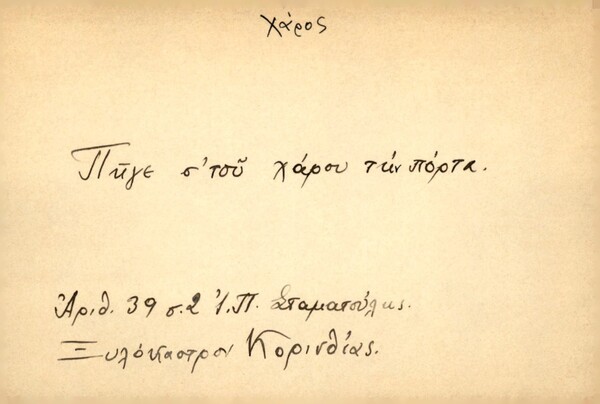 χάρος
Πῆγε σ' τοῦ χάρου τήν πόρτα.
Ἀριθ. 39 σ.2 Ἰ.Π. Σταματούλης.
Ξυλόκαστρον Κορινθίας.